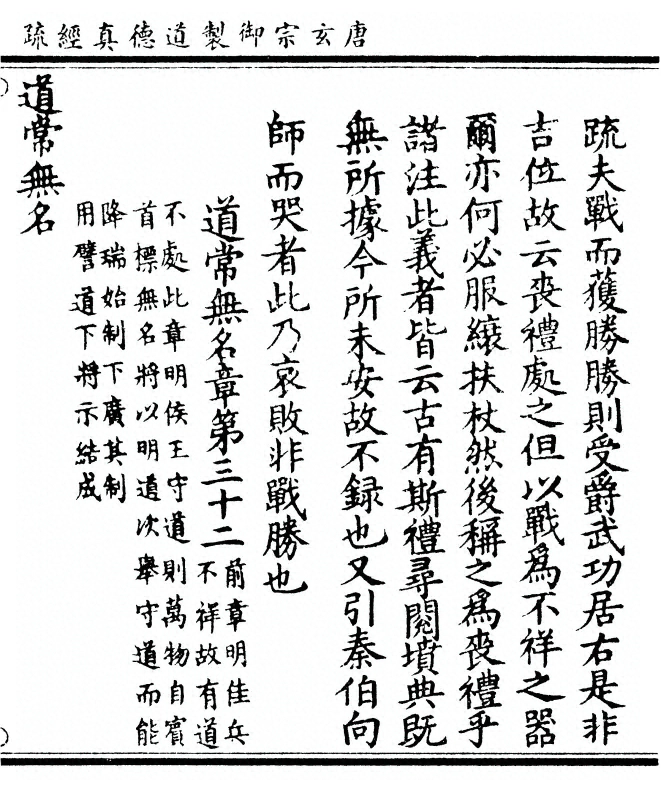 唐玄宗御製道德真經疏
疏夫戰而獲勝勝則受爵武功居右是非
吉位故云喪禮處之但以戰爲不祥之器
爾亦何必服縗扶杖然後稱之爲喪禮乎
諸注此義者皆云古有斯禮尋閱墳典既
無所據今所未安故不録也又引秦伯向
師而哭者此乃哀敗非戰勝也
道常無名章第三十二
前章明佳兵
不祥故有道
不處此章明侯王守道則萬物自賓
首標無名將以明道次舉守道而能
降瑞始制下廣其制
用譬道下將示結成
道常無名